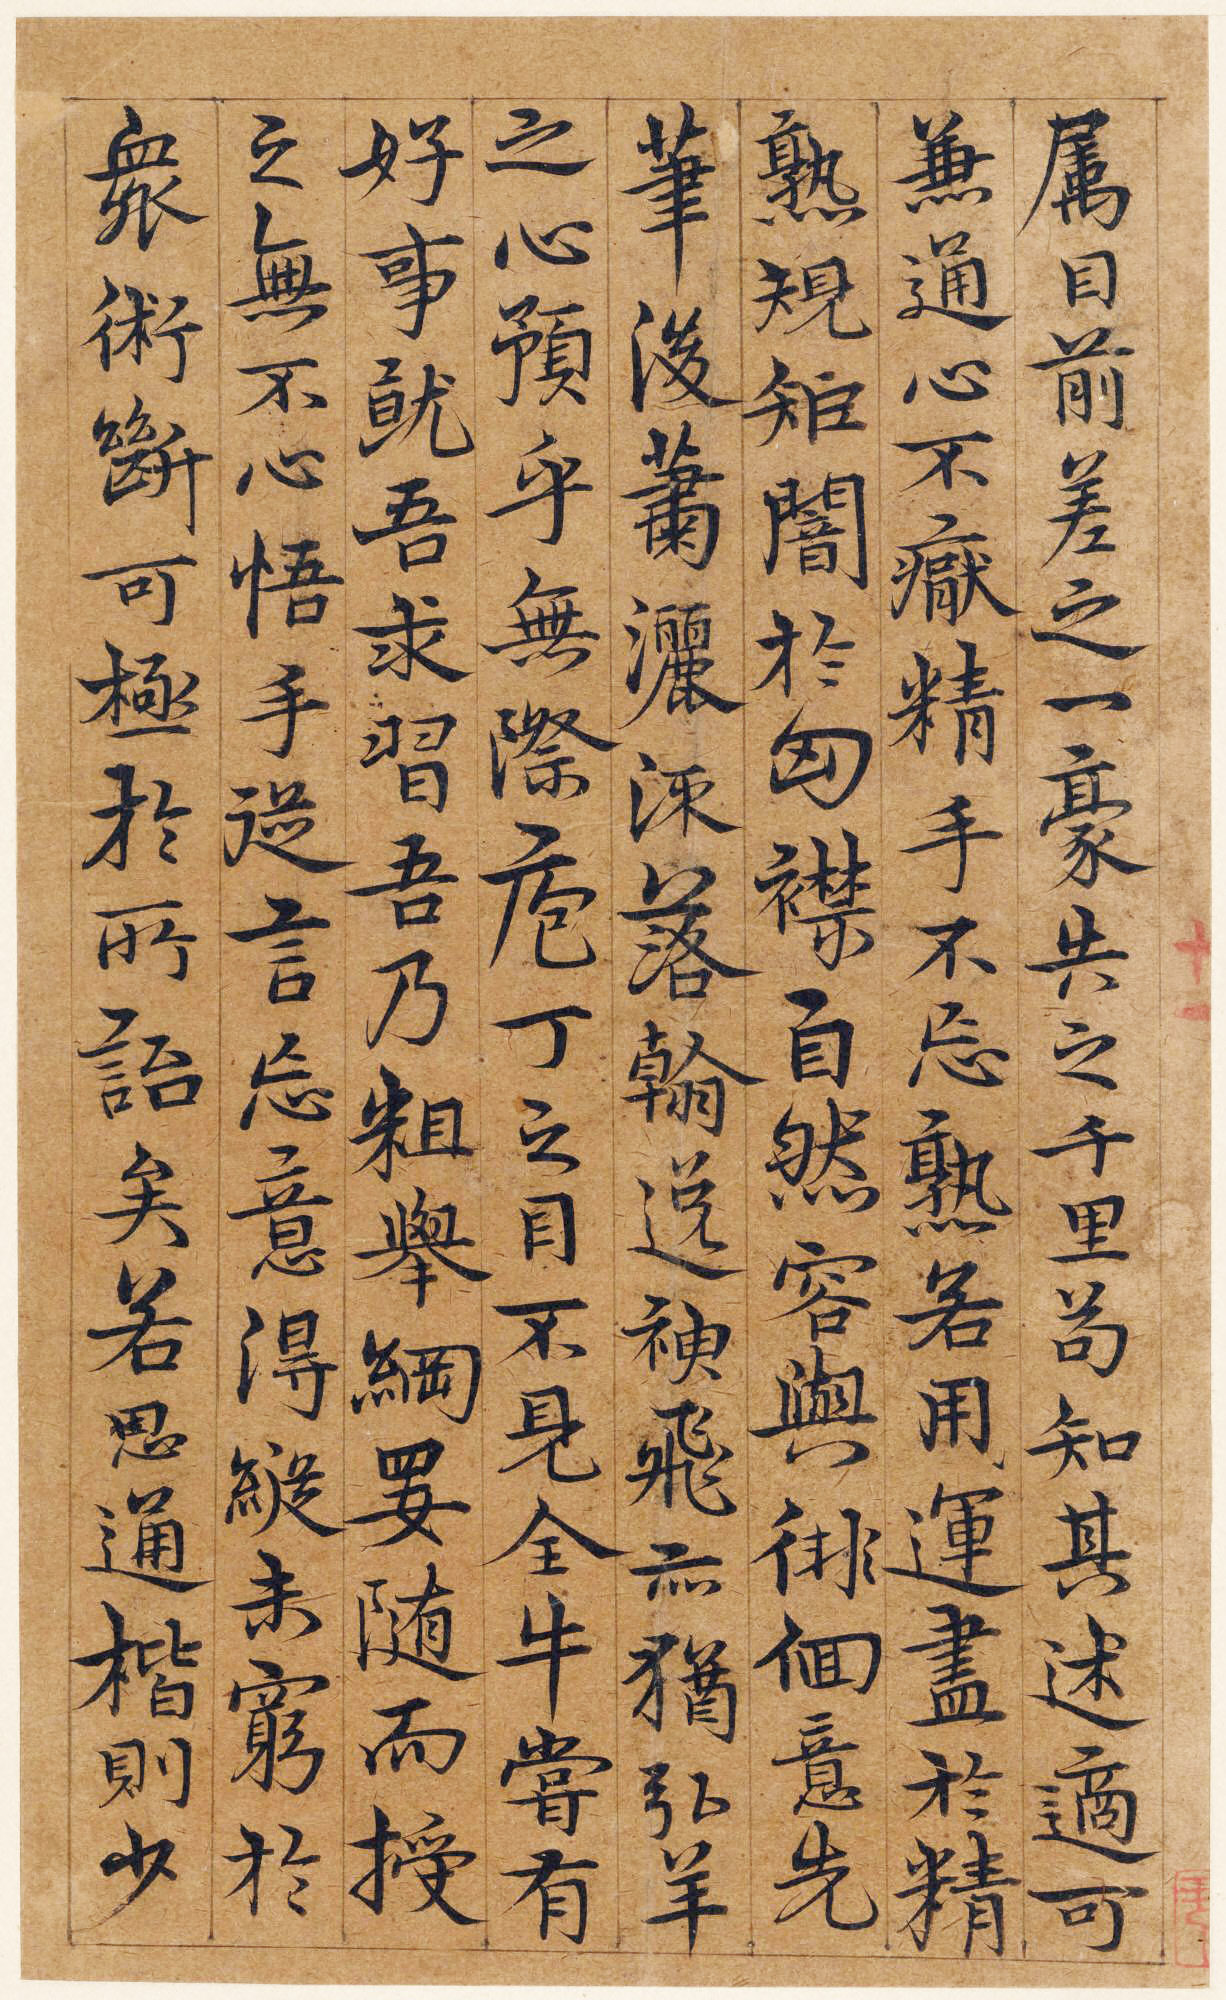 属目前差之一豪失之千里茍知其述適可
兼通心不厭精手不忘熟若用運盡於精
熟規矩闇於匈襟自然容與徘徊意先
筆後蕭灑流落翰逸神飛亦猶弘羊
之心預乎無際庖丁之目不見全牛嘗有
好事就吾求習吾乃粗舉綱要隨而授
之無不心悟手從言忘意得縱未窮於
衆術斷可極於所詣矣若思通楷則少
十二